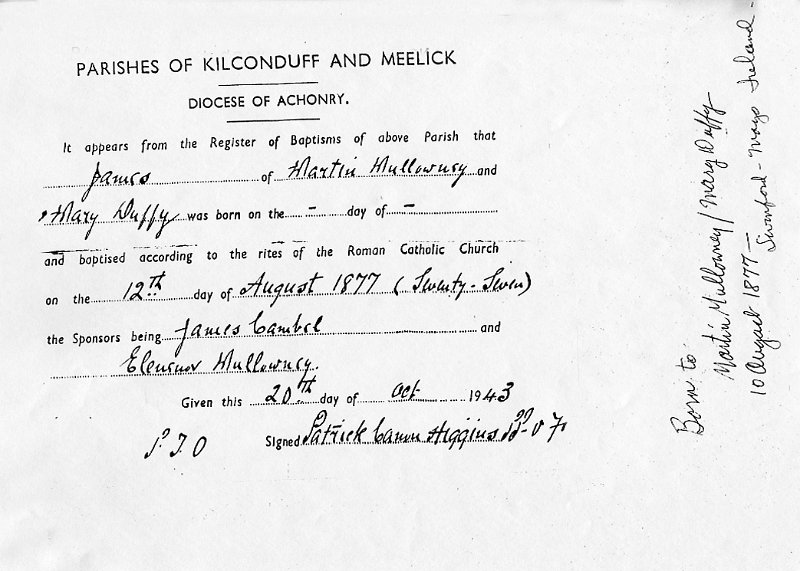 PARISHES OF KILCONDUFF AND MEELICK
DIOCESE OF ACHONRY.
It appears from the Register of Baptisms of above Parish that
James of Martin Mullowney and
Mary Duffy was born on the - day of -
and baptised according to the rites of the Roman Catholic Church
on the 12th day of August 1877 (Seventy-Seven)
the Sponsors being James Cambel and
Eleanor Mullowney.
Given this 20th day of Oct 1943
P.T.O Signed Patrick Canon Higgins PP. V F.
Born to:
Martin Mullowney / Mary Duffy
10 August 1877 -
Swinford - Mayo Ireland -